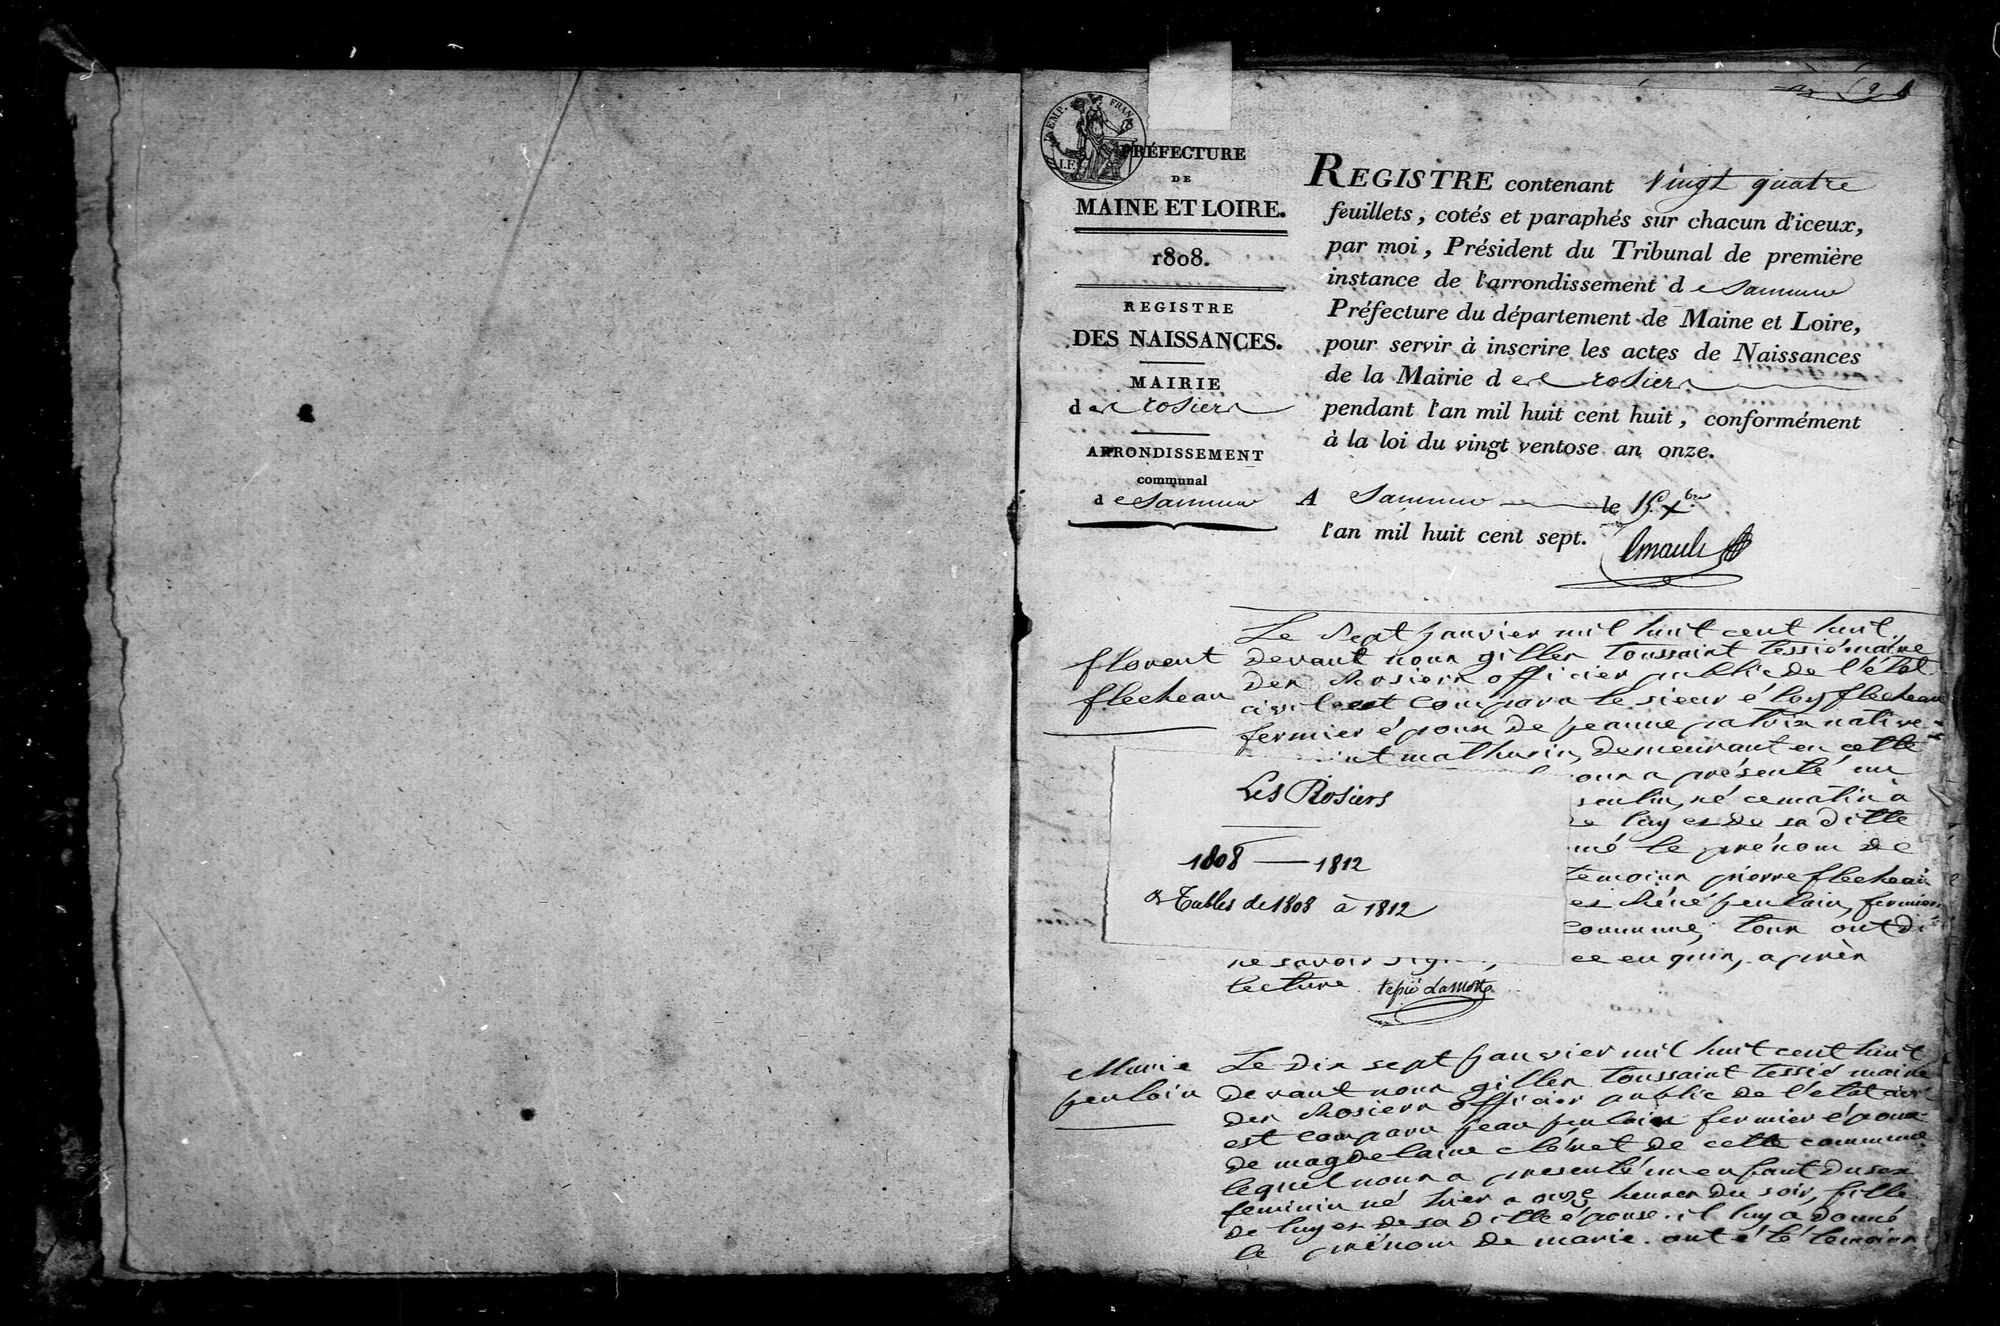 EMP. FRAN.
PRÉFECTURE
DE
MAINE ET LOIRE.
1808.
REGISTRE
DES NAISSANCES.
MAIRIE
des rosiers
ARRONDISSEMENT
communal
de Saumur
REGISTRE contenant vingt quatre
feuillets, cotés et paraphés sur chacun d'iceux,
par moi, Président du Tribunal de première
instance de l'arrondissement de Saumur
Préfecture du département de Maine et Loire,
pour servir à inscrire les actes de Naissances
de la Mairie des rosiers
pendant l'an mil huit cent huit, conformément
à la loi du vingt ventose an onze.
A Saumur le 15 Xbre
l'an mil huit cent sept.
florent
flecheau
Le Sept janvier mil huit cent huit
devant nous gilles toussaint tessié maire
des Rosiers officier public de l'état
civil est comparu le sieur éloy flecheau
fermier époux de jeanne native
mathurin, demeurant en cette
ous a présenté un
sculin, né ce matin a
de luy et de sa ditte
né le prénom de
temoins pierre flecheau
et Réné peulain, fermiers
commune, tous ont dit
ne savoir signer, ce enquis, après
lecture. tessié Lamotte
Les Rosiers
1808 — 1812
& Tables de 1808 à 1812
Marie
peulain
Le Dix sept janvier mil huit cent huit
devant nous gilles toussaint tessié maire
des Rosiers officier public de l'état civil
est comparu jean peulain fermier époux
de magdelaine clénet de cette commune
lequel nous a presenté un enfant du sexe
feminin né hier a onze heures du soir, fille
de luy et de sa ditte épouse. il luy a donné
le prénom de marie. ont été temoins